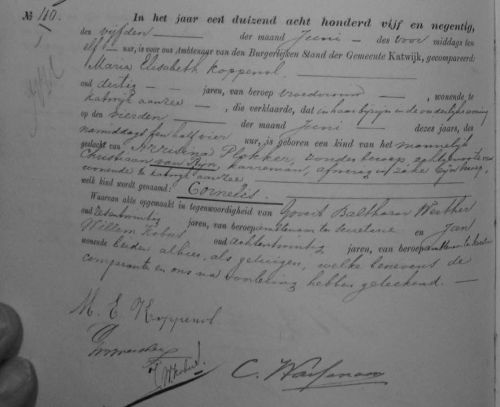 No 110. In het jaar een duizend acht honderd vijf en negentig,
den vijfden der maand Juni des voor middags ten
elf uur, is voor ons Ambtenaar van den Burgerlijken Stand der Gemeente Katwijk, gecompareerd:
Maria Elisabeth Koppenol,
oud dertig jaren, van beroep vroedvrouw, wonende te
Katwijk aan zee, die verklaarde, dat in haar bijzijn in de onderlijke woning
op den vierden der maand Juni dezes jaars, des
namiddags ten half vier uur, is geboren een kind van het mannelijk
geslacht van Plokker, zonder beroep, echtgenoote van
Christiaan van Rijn, karreman, afwezig uit zake zijn beroep,
wonende te Katwijk aan zee
welk kind wordt genaamd: Cornelis.
Waarvan akte opgemaakt in tegenwoordigheid van Govert Balthazar
oud jaren, van beroep ambtenaar ter secretarie en Jan
Willem oud achtentwintig jaren, van beroep ambtenaar ter secretarie
wonende beiden alhier, als getuigen, welke benevens de
comparante en ons na voorlezing hebben geteekend.
M. E. Koppenol
C.